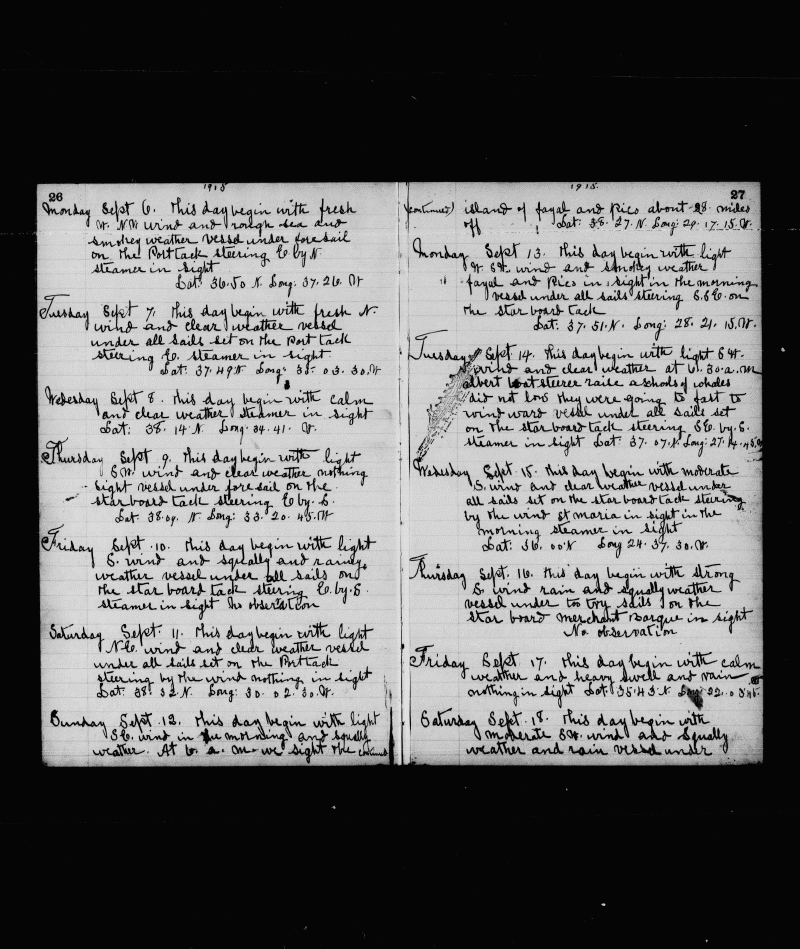 26
1915
Monday Sept 6. This day begin with fresh
W. N.W. wind and rough sea and
smokey weather vessel under fore sail
on the Port tack steering E. by N
steamer in sight
Lat: 36.50 N. Long: 37.26. W
Tuesday Sept 7. This day begin with fresh N.
wind and clear weather vessel
under all sails set on the Port tack
steering E. steamer in sight
Lat: 37.49 N Long: 35. 03. 30. W
Wedesday Sept 8. This day begin with calm
and clear weather steamer in sight
Lat: 38. 14 N. Long: 34. 41. W.
Thursday Sept 9. This day begin with light
S.W. wind and clear weather nothing
sight vessel under fore sail on the
star board tack steering E by. S.
Lat: 38.04. N Long: 33. 20. 45. W
Friday Sept. 10. This day begin with light
S. wind and squally and rainey
weather vessel under all sails on
the star board tack steering E. by. S
steamer in sight No observation
Saturday Sept. 11. This day begin with light
N.E. wind and clear weather vessel
under all sails set on the Port tack
steering by the wind nothing in sight
Lat: 38. 32 N. Long: 30. 02. 30. W.
Sunday Sept. 12. This day begin with light
S.E. wind in the morning and squally
weather. At 6. a. m. we sight the continued
1915.
27
(continued) island of fayal and Pico about 28 miles
off Lat: 38. 27. N. Long: 29. 17. 15. W.
Monday Sept 13. This day begin with light
W. SW. wind and smokey weather
fayal and Pico in sight in the morning
vessel under all sails steering S.S.E. on
the star board tack
Lat: 37. 51. N. Long: 28. 21. 15. W.
Tuesday Sept 14. This day begin with light SW.
wind and clear weather at 6. 30. a. m
albert boat steerer raise a schools of whales
did not low they were going to fast to
wind ward vessel under all sails set
on the star board tack steering S.E. by. S.
steamer in sight Lat: 37. 07. N. Long: 27. 14. 45. W
Wedesday Sept. 15. this day begin with moderate
S. wind and clear weather vessel under
all sails set on the star board tack steering
by the wind St maria in sight in the
morning steamer in sight
Lat: 36. 00. N Long 24. 37. 30. W.
Thursday Sept. 16. this day begin with strong
S. wind rain and squally weather
vessel under to toy sails on the
star board Merchant Barque in sight
No observation
Friday Sept. 17. this day begin with calm
weather and heavy swell and rain
nothing in sight Lat. 35.43 N Long: 22. 03 45.
Saturday Sept. 18. This day begin with
moderate SW. wind and squally
weather and rain vessel under